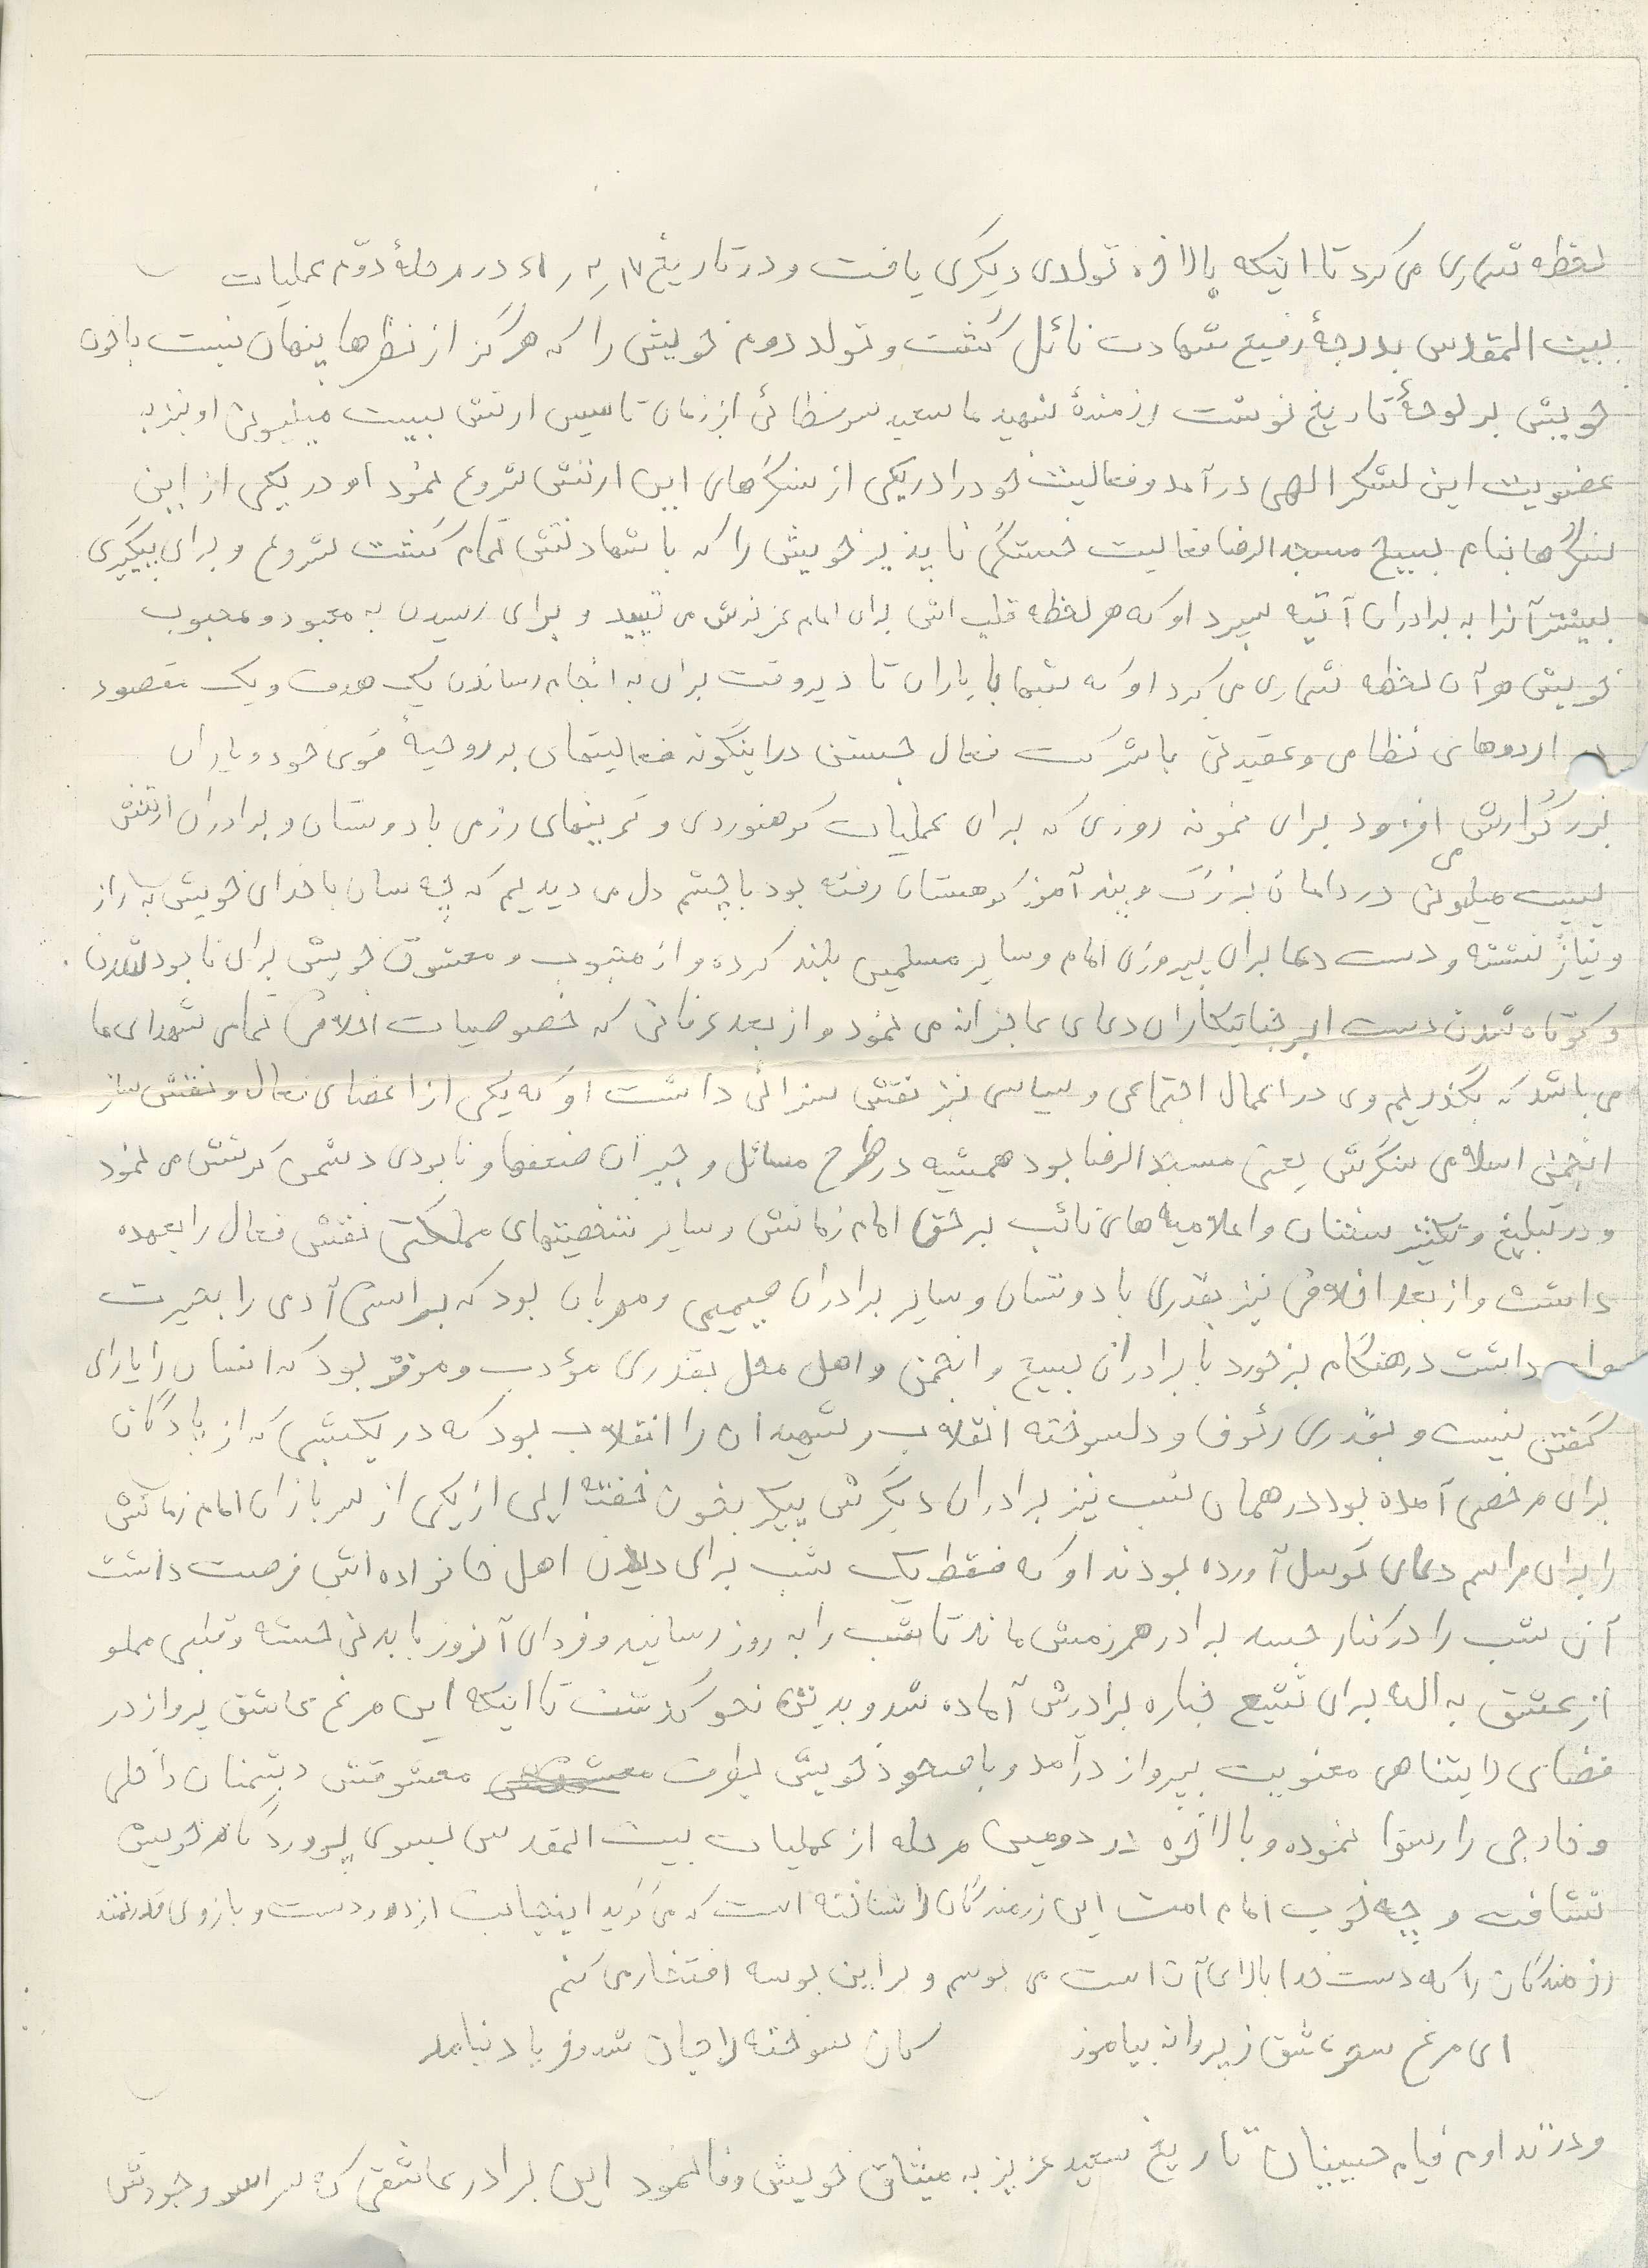 لحظه شماری می کرد تا اینکه بالاخره تولدی دیگری یافت و در تاریخ ۱۷ در مرحلهٔ دوّم عملیات
بیت المقدس بدرجهٔ رفیع شهادت نائل گشت و تولد دوم خویش را که هرگز از نظرها پنهان نیست باخون
خویش بر لوحهٔ تاریخ نوشت رزمندهٔ شهید ما سعید از زمان تاسیس ارتش بیست میلیونی او نیز به
عضویت این لشکر الهی درآمد و فعالیت خود را در یکی از سنگرهای این ارتش شروع نمود او در یکی از این
سنگرها بنام بسیج مسجد الرضا فعالیت خستگی ناپذیر خویش را که با شهادتش تمام گشت شروع و برای پیگیری
بیشتر آنرا به برادران آتیه سپرد او که هر لحظه قلب اش برای امام عزیزش می تپید و برای رسیدن به معبود و محبوب
خویش هر آن لحظه شماری می کرد او که شبها با یاران تا دیر وقت برای به انجام رساندن یک هدف و یک مقصود
در اردوهای نظامی و عقیدتی با شرکت فعال جستن در اینگونه فعالیتهای به روحیهٔ قوی خود و یاران
بزرگوارش می افزود برای نمونه روزی که برای عملیات کوهنوردی و تمرینهای رزمی با دوستان و برادران ارتش
بیست میلیونی در دامان بزرگ و پند آموز کوهستان رفته بود با چشم دل می دیدیم که چه سان با خدای خویش به راز
و نیاز نشسته و دست دعا برای پیروزی امام و سایر مسلمین بلند کرده و از محبوب و معشوق خویش برای نابود شدن
و کوتاه شدن دست ابر جنایتکاران دعای عاجزانه می نمود و از بعد عرفانی که خصوصیات اخلاقی تمامی شهدای ما
می باشد که بگذریم وی در اعمال اجتماعی و سیاسی نیز نقش سزائی داشت او که یکی از اعضای فعال و نقش ساز
انجمن اسلامی سنگرش یعنی مسجد الرضا بود همیشه در طرح مسائل و جبران ضعفها و نابودی دشمن کوشش می نمود
و در تبلیغ و تکثیر سخنان و اعلامیه های نائب بر حق امام زمانش و سایر شخصیتهای مملکتی نقش فعال را بعهده
داشت و از بعد اخلاقی نیز بقدری با دوستان و سایر برادران صمیمی و مهربان بود که براستی آدمی را بحیرت
وا می داشت در هنگام برخورد با برادران بسیج و انجمن و اهل محل بقدری مؤدب و موقر بود که انسان را یارای
گفتن نیست و بقدری رئوف و دلسوخته انقلاب و شهیدان را انقلاب بود که در یکشبی که از پادگان
برای مرخصی آمده بود در همان شب نیز برادران دیگرش پیکر بخون خفته ایی از یکی از سربازان امام زمانش
را برای مراسم دعای توسل آورده بودند او که فقط یک شب برای دیدن اهل خانواده اش فرصت داشت
آن شب را در کنار جسد برادر همرزمش ماند تا شب را به روز رسانید و فردای آنروز با بدنی خسته و قلبی مملو
از عشق به الله برای تشیع جنازه برادرش آماده شد و بدین نحو گذشت تا اینکه این مرغ عاشق پرواز در
فضای لایتناهی معنویت بپرواز درآمد و با صعود خویش بطرف معشوقش دشمنان داخلی
و خارجی را رسوا نموده و بالاخره در دومین مرحله از عملیات بیت المقدس بسوی پروردگار خویش
شتافت و چه خوب امام امت این رزمندگان را شناخته است که می گوید اینجانب از دور دست و بازوی قدرتمند
رزمندگان را که دست خدا بالای آن است می بوسم و بر این بوسه افتخار می کنم
ای مرغ سحر عشق ز پروانه بیاموز      کان سوخته را جان شد و فریاد نیامد
و در تداوم قیام حسینیان تاریخ سعید عزیز به میثاق خویش وفا نمود این برادر عاشقی که سراسر وجودش